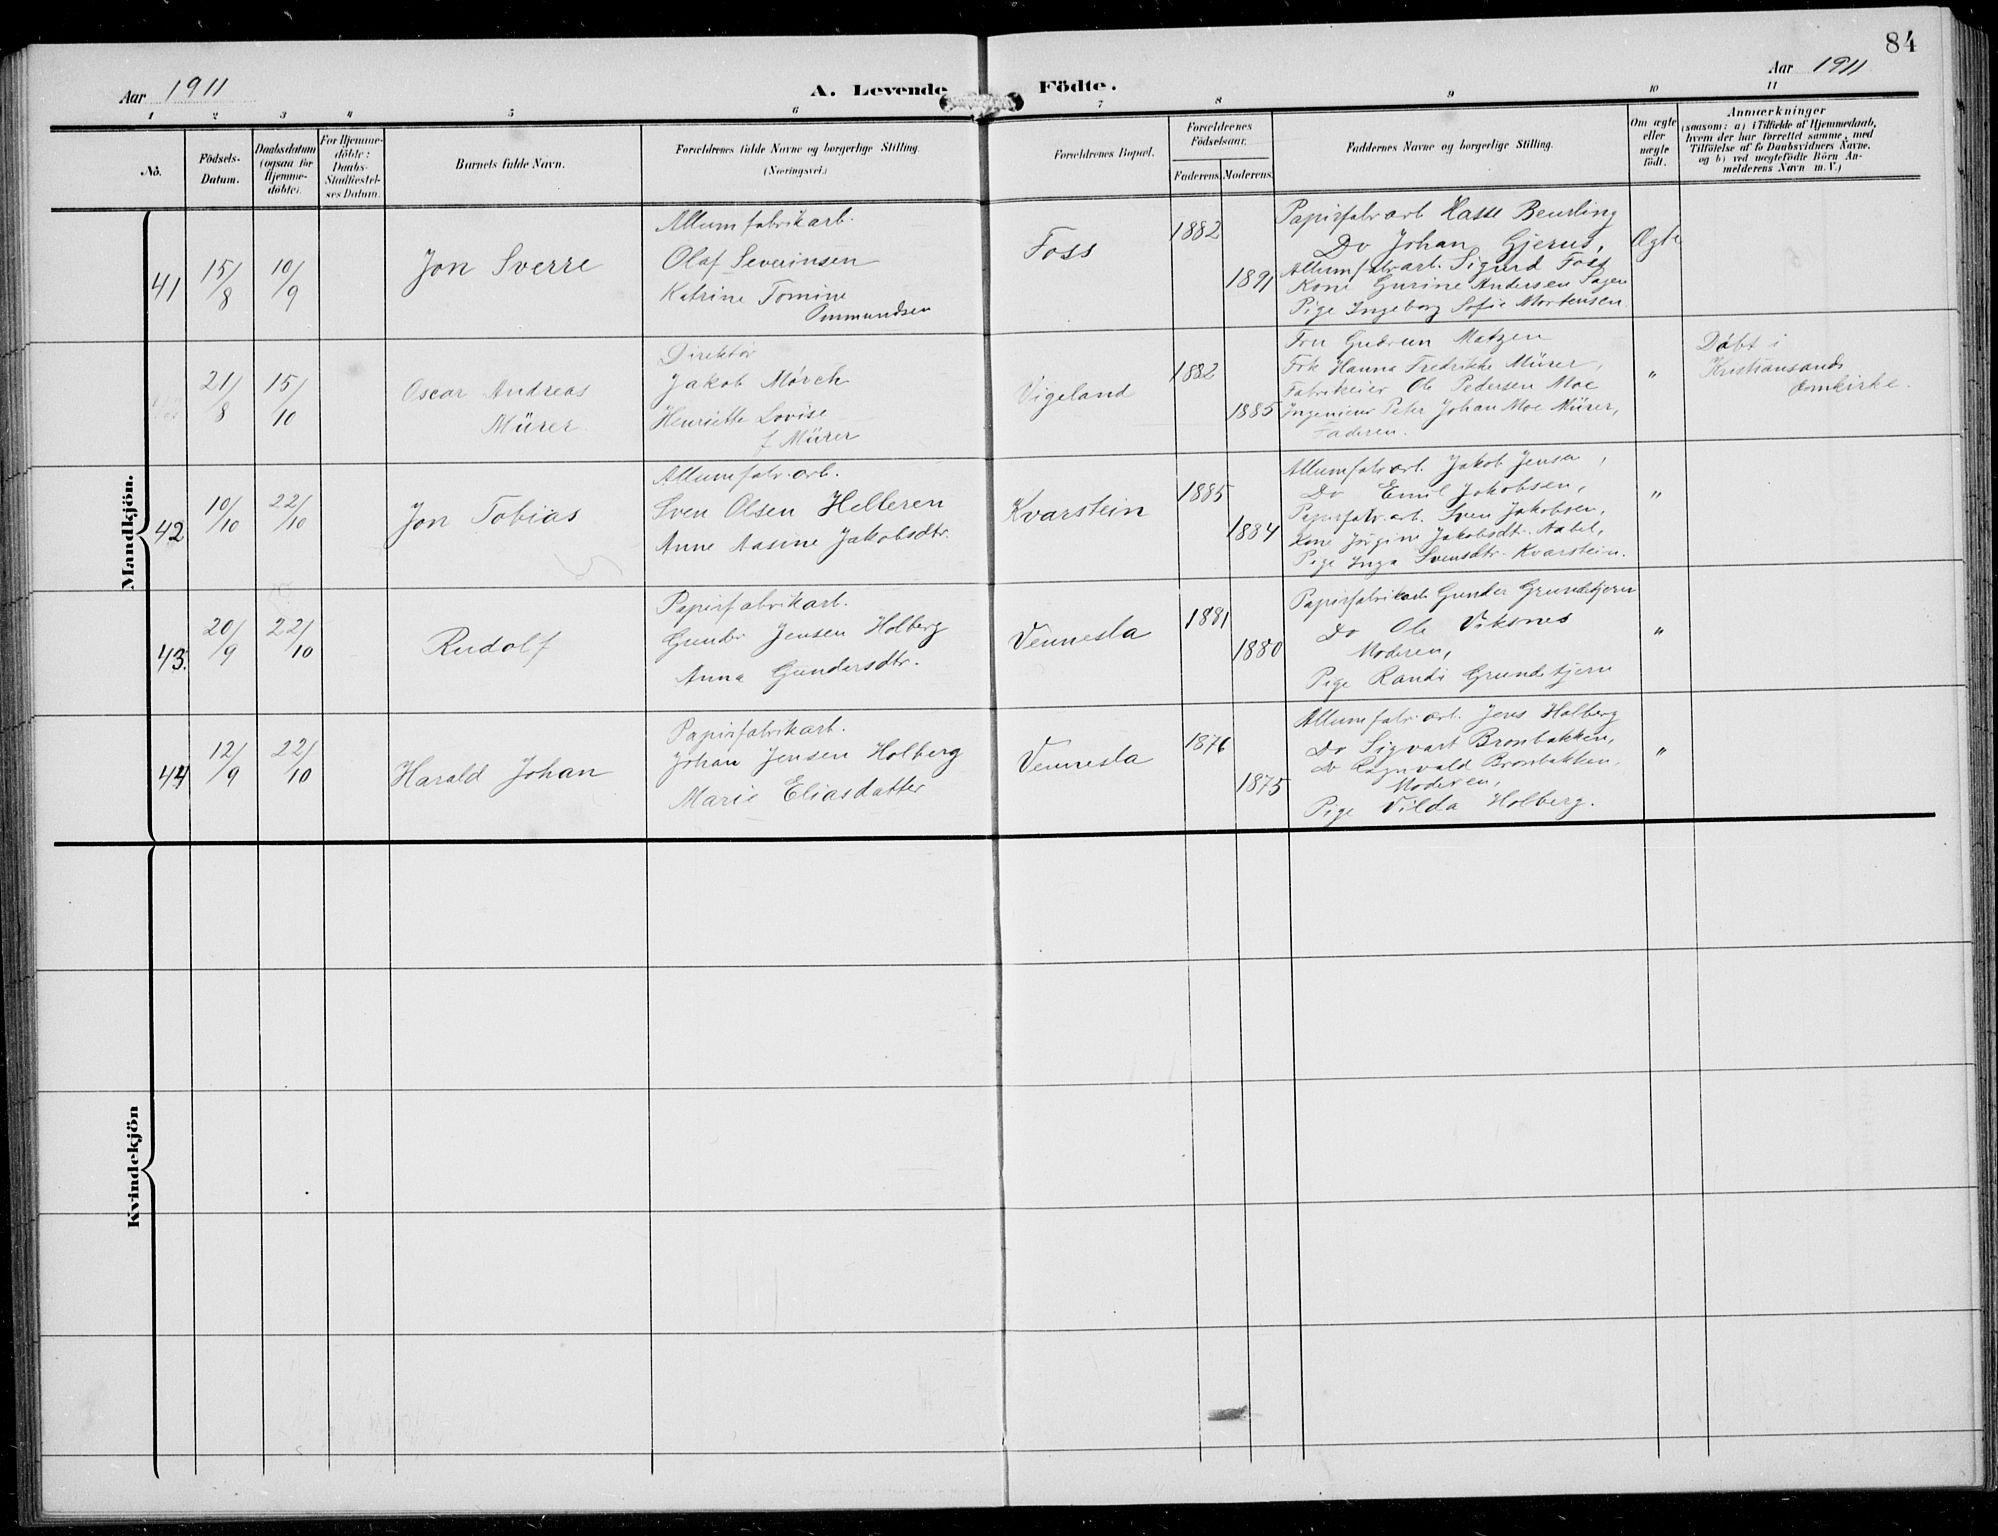 84
Aar 1911
A. Levende Födte.
Aar 1911
1 2 3 4 5 6 7 8 9 10 11
No.
Födsels-
Datum.
Daabsdatum
(ogsaa for
Hjemme-
döbte).
For Hjemme-
döbte:
Daabs-
Stadfæstel-
ses Datum.
Barnets fulde Navn.
Forældrenes fulde Navne og borgerlige Stilling.
(Næringsvei.)
Forældrenes Bopæl.
Forældrenes
Födselsaar.
Faderens.
Moderens.
Faddernes Navne og borgerlige Stilling.
Om ægte
eller
uægte
født.
Anmærkninger
(saasom: a) i Tilfælde af Hjemmedaab,
hvem der har forrettet samme, med
Tilföielse af to Daabsvidners Navne,
og b) ved uægtefödte Börn An-
melderens Navn m. V.)
Mandkjön.
41
15/8
10/9
Jon Sverre
Allumfabrikarb.
Olaf Severinsen
Katrine Tomine
Ommundsen
Foss
1882
1891
Papirfabr arb Hasse Beurling
Do Johan Gjerus,
Allumfabrarb. Sigurd Foss
Kone Gurine Andersen Sagen
Pige Ingeborg Sofie Mortensen
Ægte
21/8
15/10
Oscar Andreas
Mürer
Direktör
Jakob Mörch
Henriette Lovise
f Mürer
Vigeland
1882
1885
Fru Gudrun Matzen
Frk Hanna Fredrikke Mürer,
Fabrikeier Ole Pedersen Moe
Ingeniør Peter Johan Moe Mürer,
Faderen.
"
Døbt i
Kristiansands
Domkirke.
42
10/10
22/10
Jon Tobias
Allumfabr.arb.
Sven Olsen Helleren
Anne Aasine Jakobsdtr.
Kvarstein
1885
1884
Allumfabr arb. Jakob Jensen,
Do Emil Jakobsen,
Papirfabr.arb. Sven Jakobsen,
Kone Jörgine Jakobsdtr. Aabel,
Pige Inga Svensdtr. Kvarstein.
"
43.
20/9
22/10
Rudolf
Papirfabrikarb.
Gunder Jensen Holberg
Anna Gundersdtr.
Vennesla
1881
1880
Papirfabrikarb Gunder Grundetjern
Do Ole Viksnes
Moderen,
Pige Randi Grundetjern
"
44
12/9
22/10
Harald Johan
Papirfabrikarb.
Johan Jensen Holberg
Marie Eliasdatter
Vennesla
1876
1875
Allumfabr arb. Jens Holberg
Do Sigvart Bronbakken,
Do Ragnvald Bronbakken,
Moderen,
Pige Vilda Holberg.
"
Kvindekjön